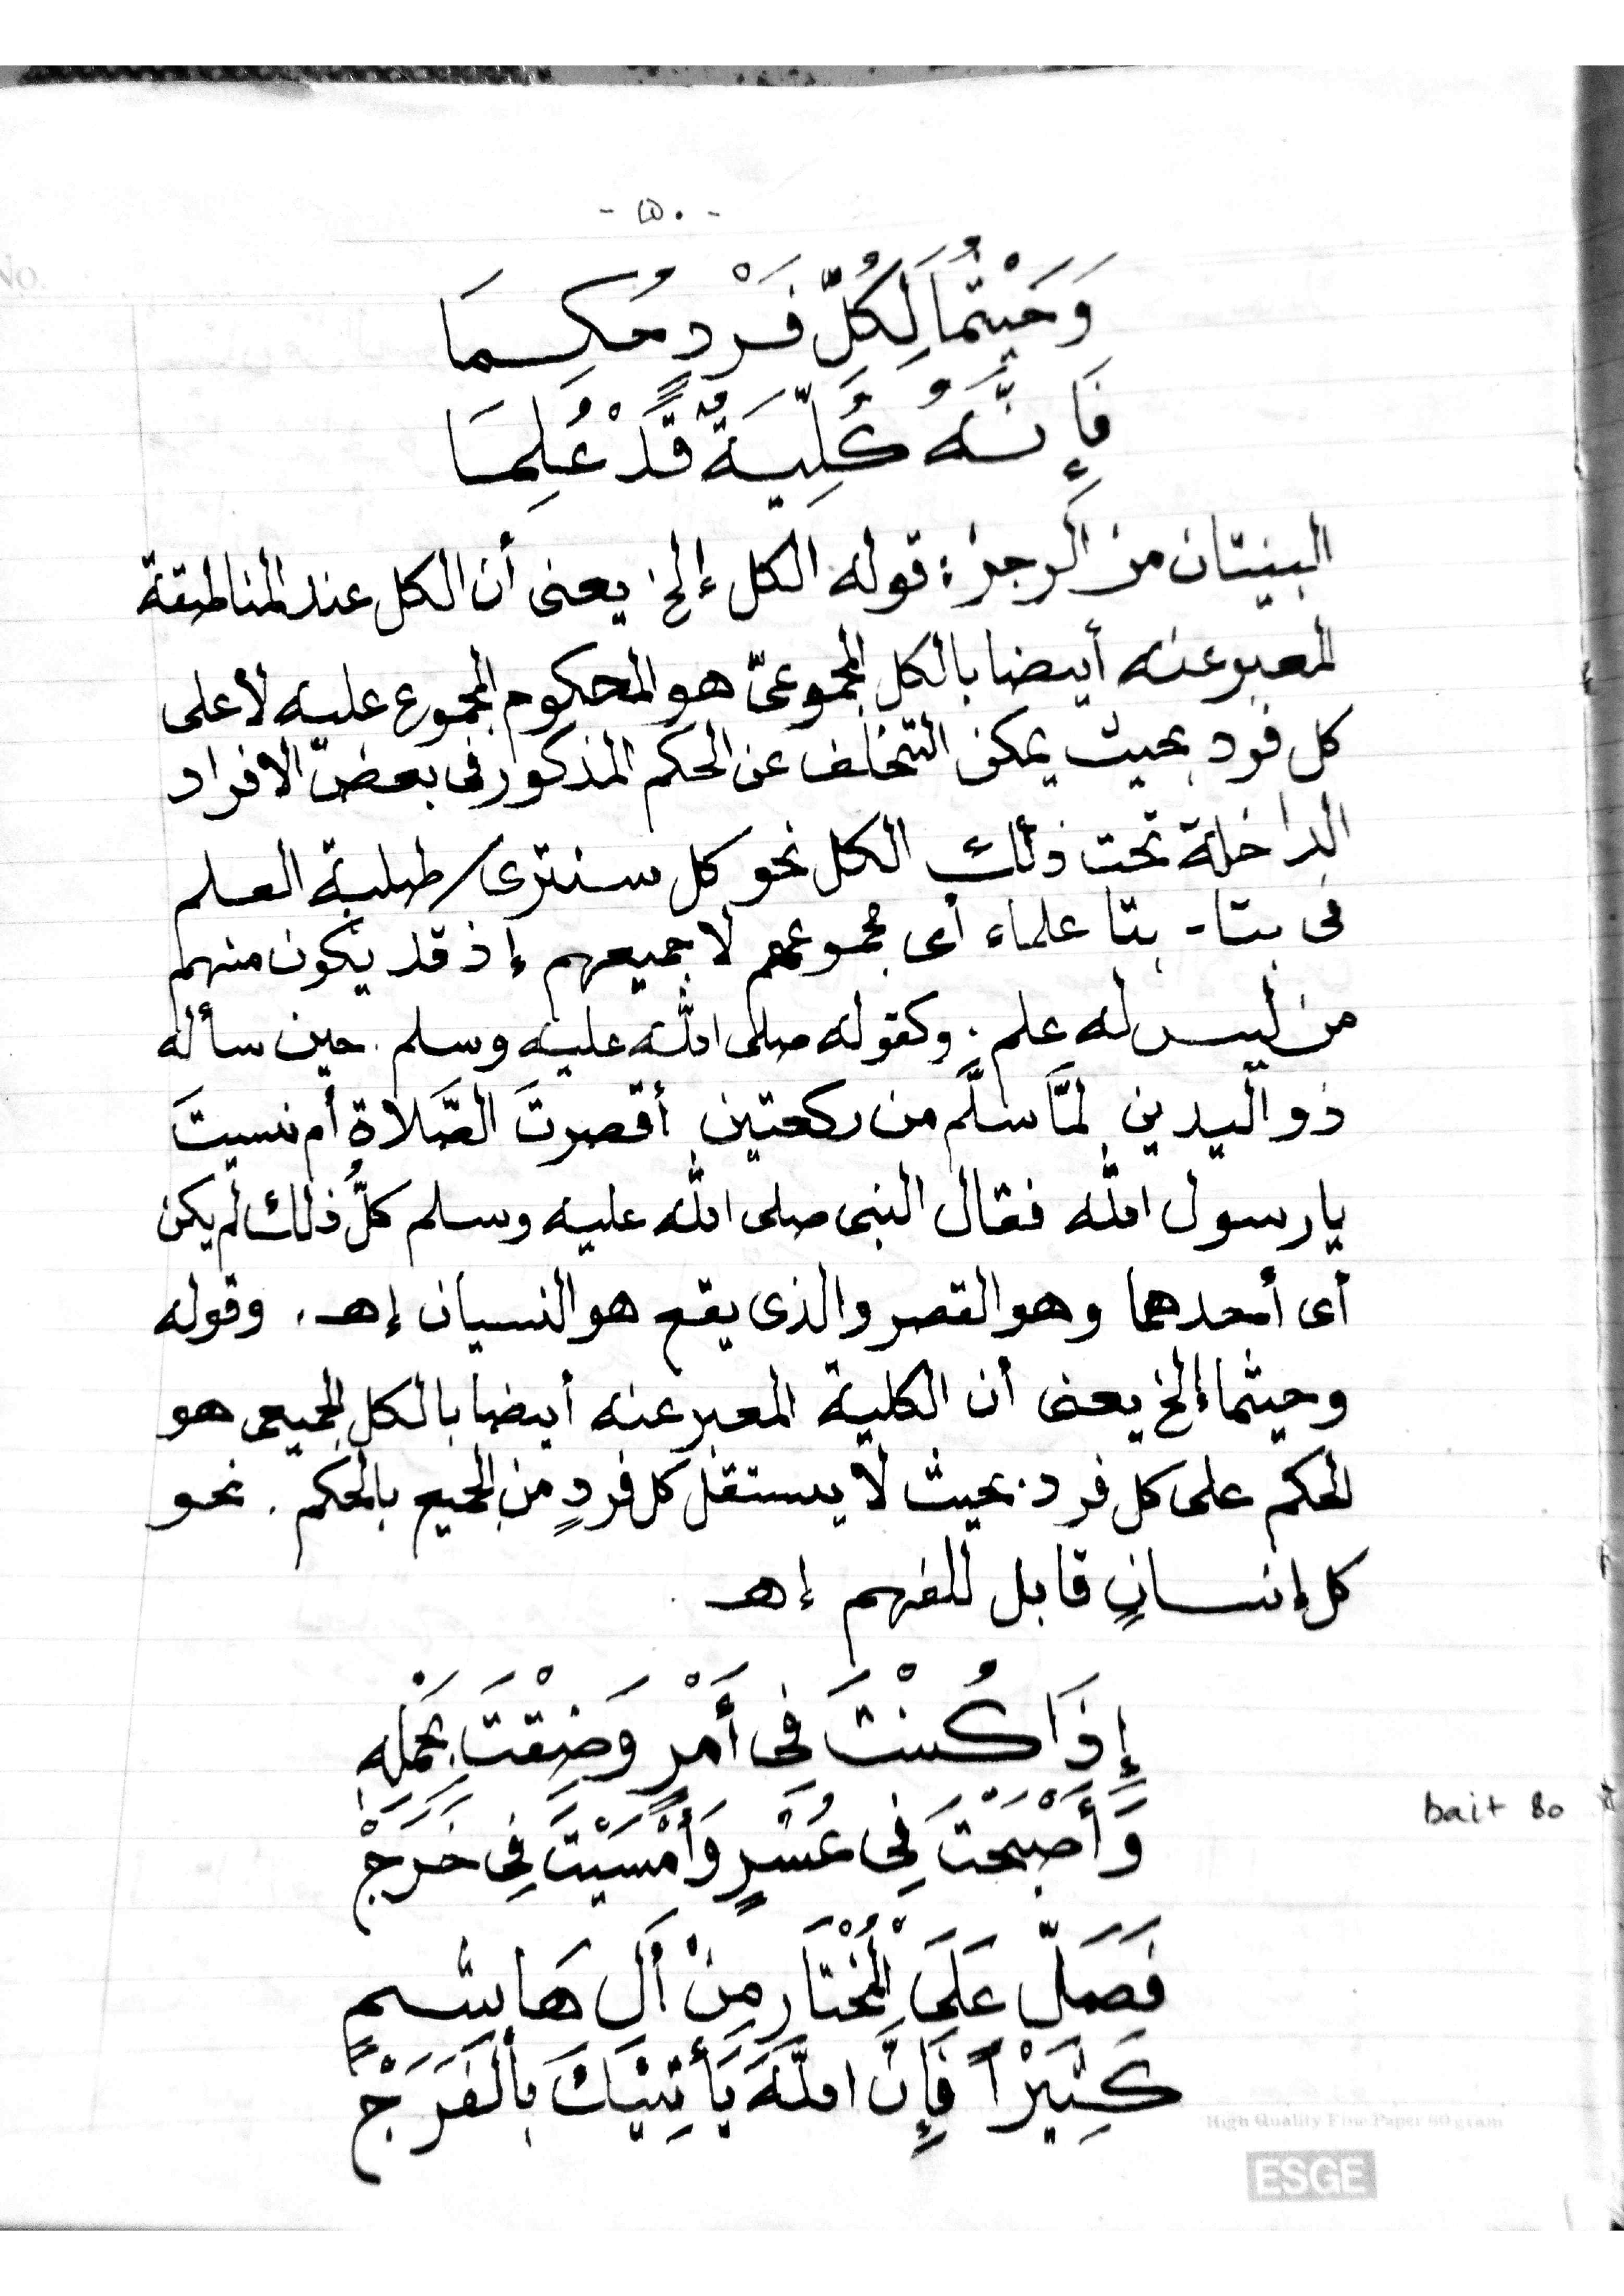 - ٥٠ -
No.
وَحَيْثُمَا لِكُلِّ فَرْدٍ حُكِمَا
فَإِنَّهُ كُلِّيَةٌ قَدْ عُلِمَا
البيتان من الرجز : قوله الكل إلخ يعنى أن الكل عند المناطقة
المعبر عنه أيضا بالكل المجموعىّ هو المحكوم المجموع عليه لا على
كل فرد بحيث يمكن التخلف عن الحكم المذكور فى بعض الافراد
الداخلة تحت ذلك الكل نحو كل سنترى / طلبة العلم
فى بتا - بتا علماء أى مجموعهم لا جميعهم إذ قد يكون منهم
من ليس له علم . وكقوله صلى الله عليه وسلم . حين سأله
ذو اليدين لمَّا سلَّم من ركعتين أقصرتَ الصَّلاة أم نسيتَ
يا رسول الله فقال النبى صلى الله عليه وسلم كلُّ ذلك لم يكن
أى أحدهما وهو القصر والذى يقع هو النسيان إهـ . وقوله
وحيثما إلخ يعنى أن الكلية المعبر عنه أيضا بالكل الجميعى هو
الحكم على كل فرد . بحيث لا يستقل كل فردٍ من الجميع بالحكم . نحو
كل إنسانٍ قابل للفهم إهـ .
إِذَا كُنْتَ فِى أَمْرٍ وَضِقْتَ بِحَمْلِهِ
وَأَصْبَحْتَ فِى عُسْرٍ وَأَمْسَيْتَ فِى خَرَجْ
bait 80
فَصَلِّ عَلَى الْمُخْتَارِ مِنْ أَلِ هَاشِمٍ
كَثِيْرًا فَإِنَّ اللَّهَ يَأْتِيْكَ بِالْفَرَجْ
High Quality Fine Paper 60 gram
ESGE